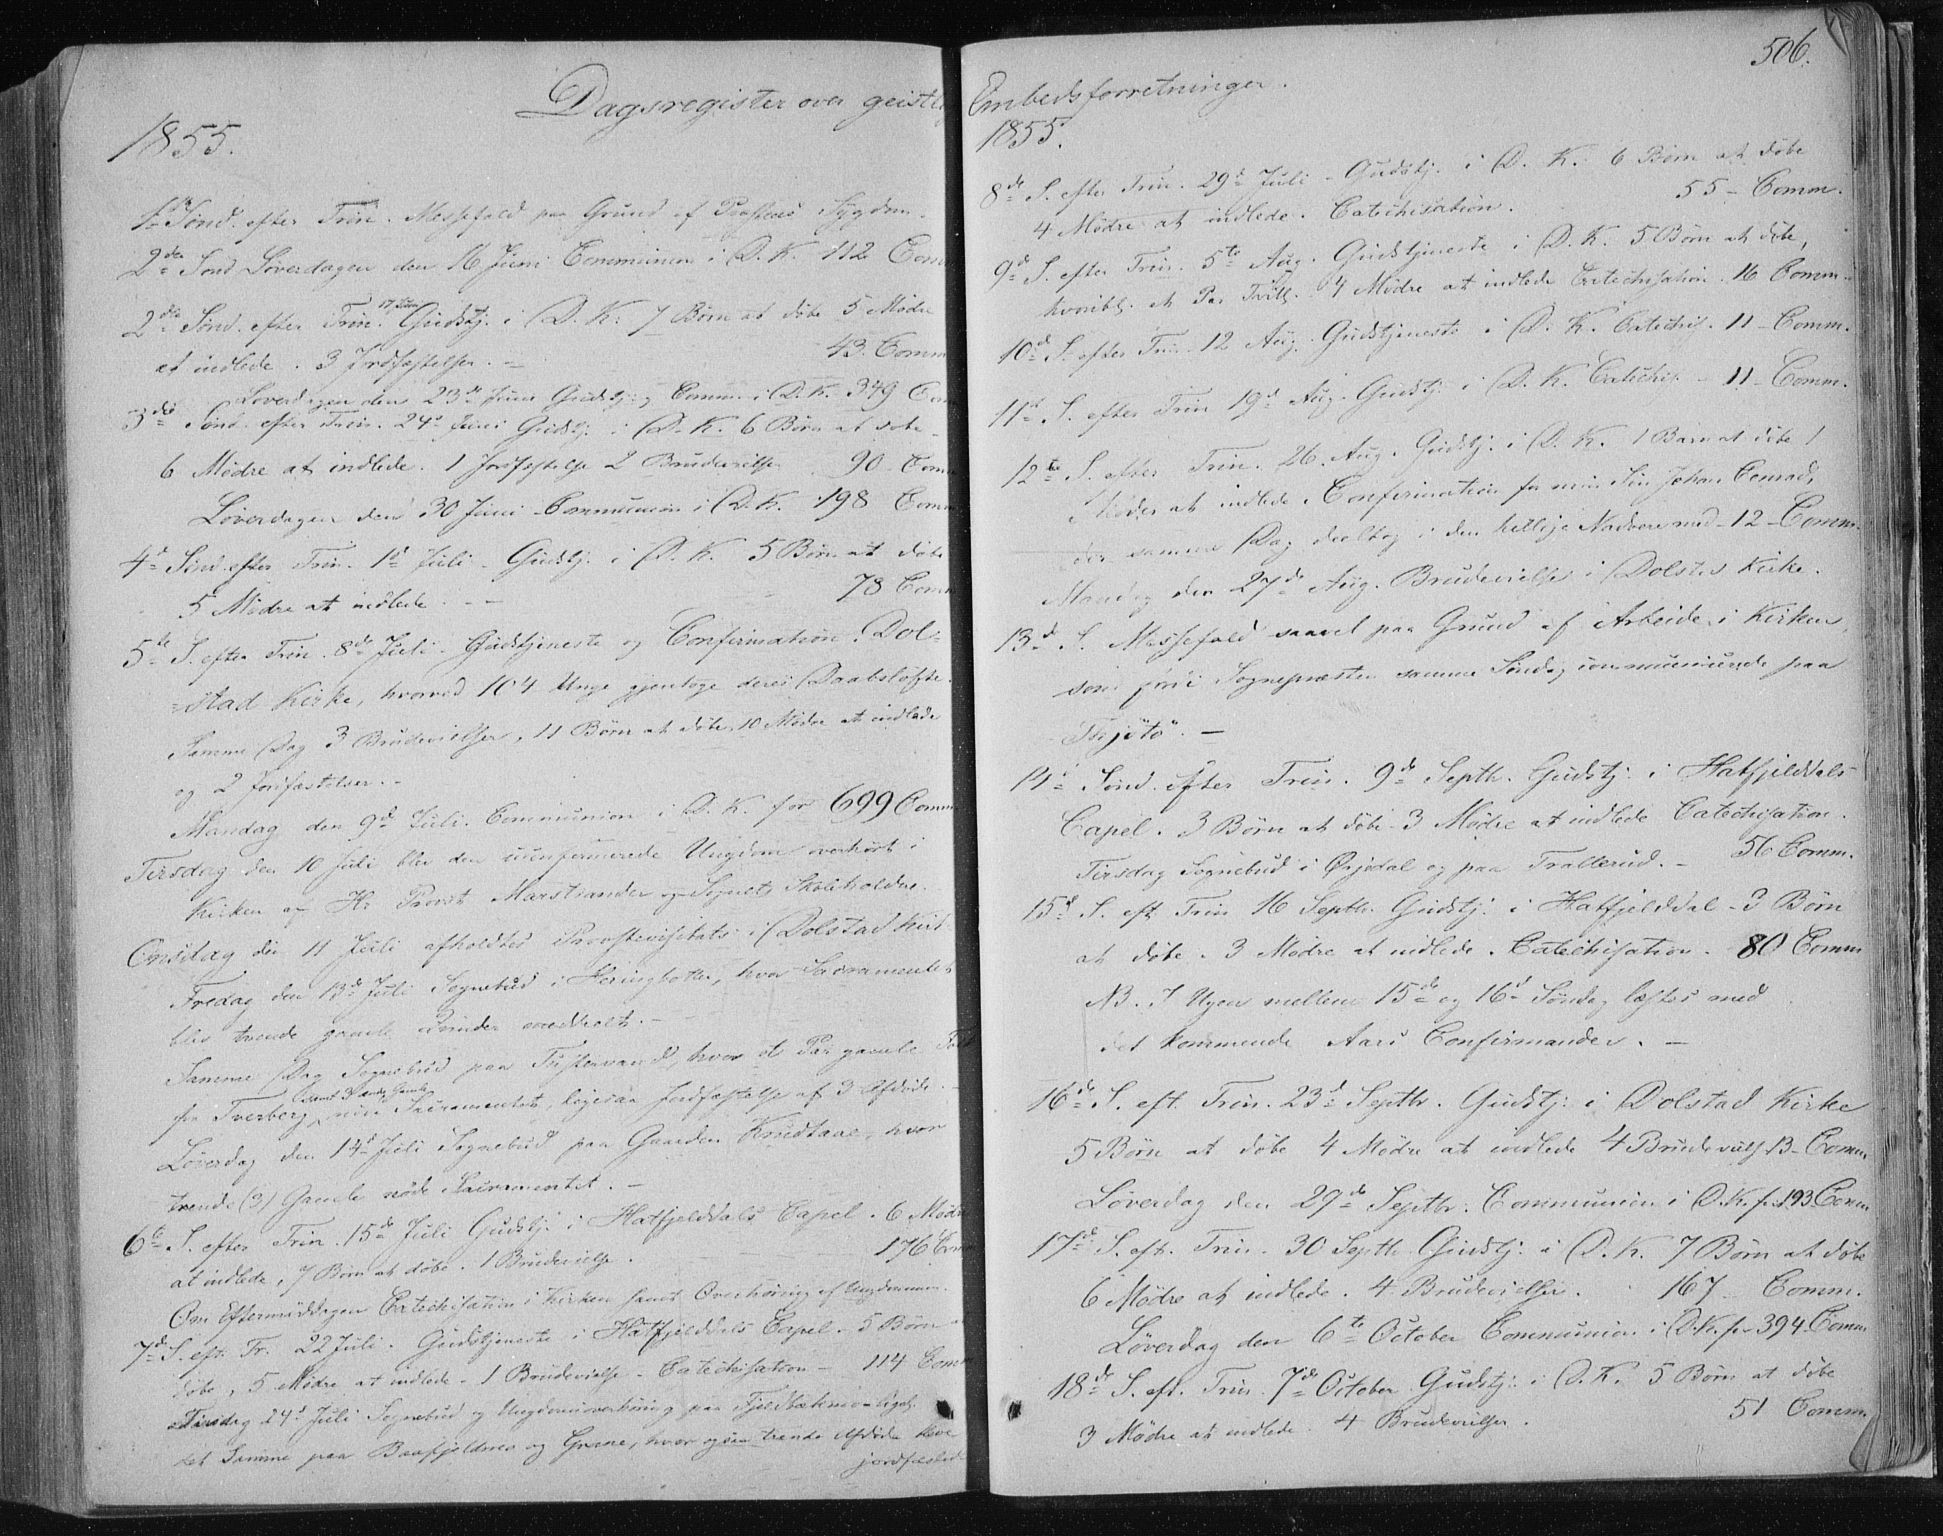 Dagsregister over geistl
1855.
1ste Sønd. efter Trin. Messefald paa Grund af Præstens Sygdom.
2den Sønd Løverdagen den 16 Juni Communion i D. K. 112 Com
2den Sønd. efter Trin. 17 Juni Gudstj. i D. K. 7 Børn at døbe 5 Mødre
at indlede. 3 Jordfæstelser. – 43. Comm
Løverdagen den 23de Juni Gudstj. og Comm. i D. K. 349 Com
3die Sønd. efter Trin. 24de Juni Gudstj. i D. K. 6 Børn at døbe.
6 Mødre at indlede. 1 Jordfæstelse 2 Brudevielser 90 Comm
Løverdagen den 30 Juni Communion i D. K. 198 Comm
4de Sønd. efter Trin. 1ste Juli. Gudstj. i D. K. 5 Børn at døbe
5 Mødre at indlede. – – 78 Comm
5te S. efter Trin. 8de Juli. Gudstjeneste og Confirmation. Dol=
=stad Kirke, hvorved 104 Unge gjentoge deres Daabsløfte.
Samme Dag 3 Brudevielser, 11 Børn at døbe, 10 Mødre at indlede
og 2 Jordfæstelser. –
Mandag den 9de Juli. Communion i D. K. for 699 Comm
Tirsdag den 10 Juli blev den uconfirmerede Ungdom overhørt i
Kirken af Hr. Provst Marstrander og Sognets Skoleholdere.
Onsdag den 11 Juli afholdtes Provstevisitats i Dolstad Kirk
Fredag den 13de Juli Sognebud i Herringbotten, hvor Sacramentet
blev trende gamle Qvinder meddeelt. –
Samme Dag Sognebud paa Tustervand, hvor et Par gamle Folk
fra Tverberg samt 3 andre Gamle nøde Sacramentet, ligesaa Jordfæstelse af 3 Afdøde. –
Løverdag den 14de Juli Sognebud paa Gaarden Krudtaae, hvor
trende (3) Gamle nøde Sacramentet. –
6te S. efter Trin. 15de Juli Gudstj. i Hatfjelddals Capel. 6 Mødre
at indlede, 7 Børn at døbe. 1 Brudevielse. 176 Comm
Om Eftermiddagen Catechisation i Kirken samt Overhøring af Ungdommen.
7de S. eft. Tr. 22 Juli. Gudstjeneste i Hatfjelddals Capel. 5 Børn a
døbe, 5 Mødre at indlede. 1 Brudevielse. Catechisation – 114 Comm
Tirsdag 24de Juli Sognebud og Ungdomsoverhøring paa Fjeldbækmo – ligel.
det Samme paa Baafjeldmo og Grane, hvor ogsaa trende Afdøde bleve
jordfæstede
506.
Embedsforretninger.
1855.
8de S. efter Trin. 29de Juli – Gudstj. i D. K. 6 Børn at døbe
4 Mødre at indlede. Catechisation. 55 – Comm.
9de S. efter Trin. 5te Aug. Gudstjeneste i D. K. 5 Børn at døbe,
hvoribl. et Par Tvill. 4 Mødre at indlede Catechisation. 16 Comm.
10de S. efter Trin. 12 Aug. Gudstjeneste i D. K. Catechis. 11 – Comm.
11te S. efter Trin 19de Aug. Gudstj. i D. K. Catechis. – 11 – Comm.
12te S. efter Trin. 26. Aug. Gudstj. i D. K. 1 Barn at døbe 1
Moder at indlede. Confirmation for min Søn Johan Conrad,
der samme Dag deeltog i den hellige Nadvere med – 12 – Comm.
Mandag den 27de Aug. Brudevielse i Dolstad Kirke.
13de S. Messefald saavel paa Grund af Arbeide i Kirken,
som fordi Sognepræsten samme Søndag communicerede paa
Thjøtø. –
14de Sønd. efter Trin. 9de Septbr. Gudstj. i Hatfjelddals
Capel. 3 Børn at døbe – 3 Mødre at indlede Catechisation.
Tirsdag Sognebud i Ørjedal og paa Trallerud. – 56 Comm.
15de S. eft Trin 16 Septbr. Gudstj. i Hatfjelddal – 3 Børn
at døbe. 3 Mødre at indlede. Catechisation. 80 Comm
NB. I Ugen mellem 15de og 16de Søndag læstes med
det kommende Aars Confirmander. –
16de S. eft. Trin. 23de Septbr. Gudstj. i Dolstad Kirke
5 Børn at døbe 4 Mødre at indlede 4 Brudevielser 13 – Comm
Løverdag den 29de Septbr. Communion i D. K. f. 193 Comm
17de S. eft. Trin. 30 Septbr. Gudstj. i D. K. 7 Børn at døbe
6 Mødre at indlede. 4 Brudevielser. 167 – Comm.
Løverdag den 6te October Communion i D. K. f. 394 Comm
18de S. eft. Trin. 7de October Gudstj. i D. K. 5 Børn at døbe
3 Mødre at indlede. 4 Brudevielser. 51 Comm.